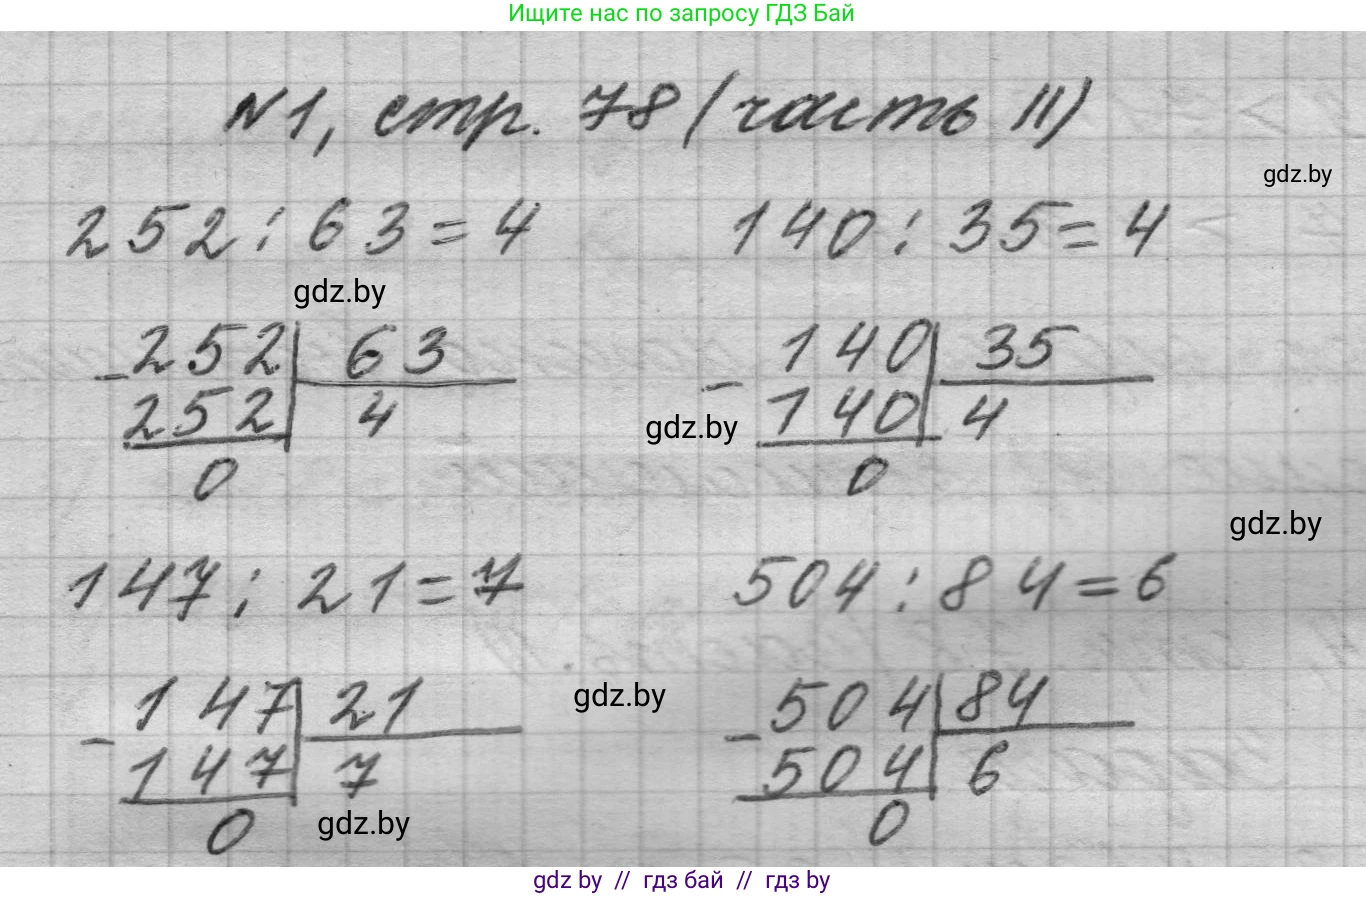 Ищите нас по запросу ГДЗ Бай
№1, стр. 78 (часть II)
gdz.by
252 : 63 = 4
140 : 35 = 4
gdz.by
- 252 63
252 4
0
- 140 35
140 4
0
gdz.by
gdz.by
147 : 21 = 7
504 : 84 = 6
- 147 21
147 7
0
gdz.by
- 504 84
504 6
0
gdz.by
gdz by // гдз бай // гдз by